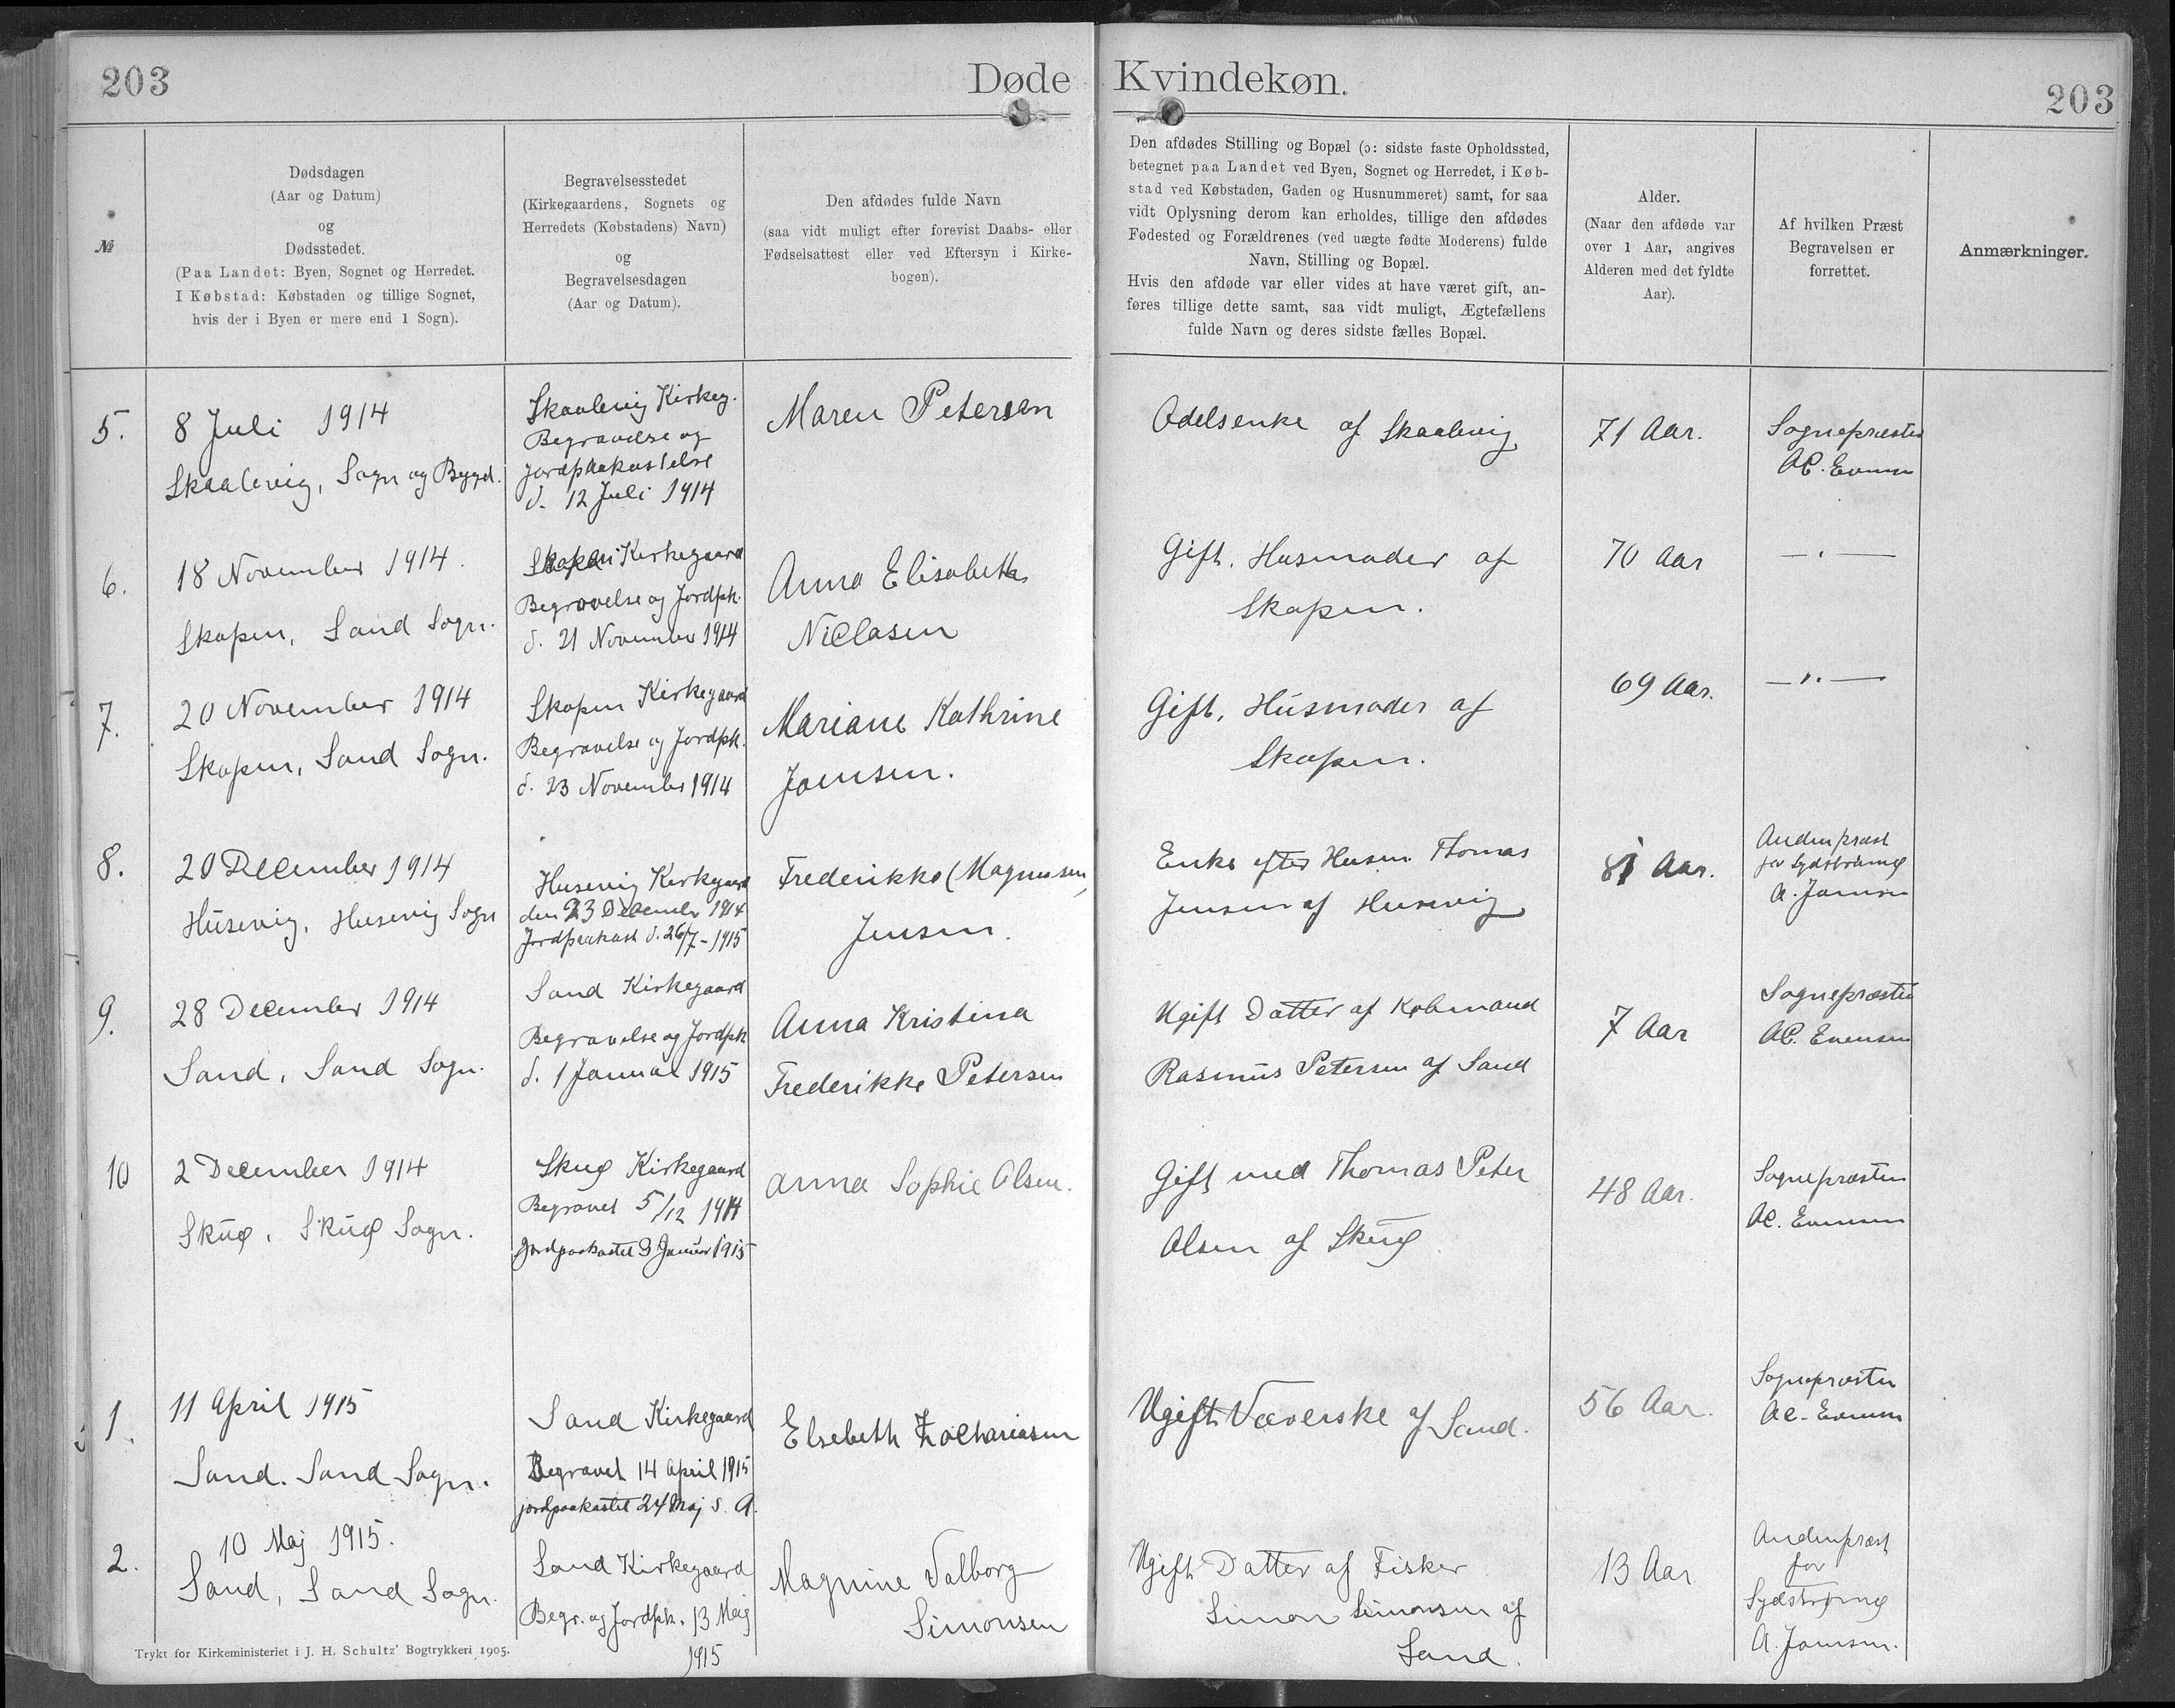 203
Døde
Kvindekøn.
203
№
Dødsdagen
(Aar og Datum)
og
Dødsstedet.
(Paa Landet: Byen, Sognet og Herredet.
I Købstad: Købstaden og tillige Sognet,
hvis der i Byen er mere end 1 Sogn).
Begravelsesstedet
(Kirkegaardens, Sognets og
Herredets (Købstadens) Navn)
og
Begravelsesdagen
(Aar og Datum).
Den afdødes fulde Navn
(saa vidt muligt efter forevist Daabs- eller
Fødselsattest eller ved Eftersyn i Kirke-
bogen).
Den afdødes Stilling og Bopæl (ɔ: sidste faste Opholdssted,
betegnet paa Landet ved Byen, Sognet og Herredet, i Køb-
stad ved Købstaden, Gaden og Husnummeret) samt, for saa
vidt Oplysning derom kan erholdes, tillige den afdødes
Fødested og Forældrenes (ved uægte fødte Moderens) fulde
Navn, Stilling og Bopæl.
Hvis den afdøde var eller vides at have været gift, an-
føres tillige dette samt, saa vidt muligt, Ægtefællens
fulde Navn og deres sidste fælles Bopæl.
Alder.
(Naar den afdøde var
over 1 Aar, angives
Alderen med det fyldte
Aar).
Af hvilken Præst
Begravelsen er
forrettet.
Anmærkninger.
5.
8 Juli 1914
Skaalevig, Sogn og Bygd.
Skaalevig Kirkeg.
Begravelse og
Jordpaakastelse
d. 12 Juli 1914
Maren Petersen
Odelsenke af Skaalevig
71 Aar.
Sognepræsten
AC. Evensen
6.
18 November 1914.
Skopen, Sand Sogn.
Skopen Kirkegaard
Begravelse og Jordpk.
d. 21 November 1914
Anna Elisabeth
Niclasen
Gift. Husmoder af
Skopen.
70 Aar
—〃—
7.
20 November 1914
Skopen, Sand Sogn.
Skopen Kirkegaard
Begravelse og Jordpk.
d. 23 November 1914
Mariane Kathrine
Joensen.
Gift, Husmoder af
Skopen.
69 Aar.
—〃—
8.
20 December 1914
Húsevig, Husevig Sogn
Husevig Kirkegaard
den 23 December 1914
Jordpaakast d. 26/7-1915
Frederikke (Magnussen)
Jensen.
Enke efter Husm. Thomas
Jensen af Husevig
81 Aar.
Andenpræst
for Sydstrømø
A. Joensen
9.
28 December 1914
Sand, Sand Sogn.
Sand Kirkegaard
Begravelse og Jordpk
d. 1 Januar 1915
Anna Kristina
Frederikke Petersen
Ugift Datter af Købmand
Rasmus Petersen af Sand
7 Aar
Sognepræsten
AC. Evensen
10
2 December 1914
Skuø, Skuø Sogn.
Skuø Kirkegaard
Begravet 5/12 1914
Jordpaakastet 3 Januar 1915
Anna Sophie Olsen.
Gift med Thomas Peter
Olsen af Skuø
48 Aar.
Sognepræsten
AC. Evensen
1.
11 April 1915
Sand. Sand Sogn.
Sand Kirkegaard
Begravet 14 April 1915
jordpaakastet 24 Maj s. A.
Elsebeth Zachariasen
Ugift Væverske af Sand.
56 Aar.
Sognepræsten
AC. Evensen
2.
10 Maj 1915.
Sand, Sand Sogn.
Sand Kirkegaard
Begr. og Jordpk. 13 Maj
1915
Magnine Valborg
Simonsen
Ugift Datter af Fisker
Simon Simonsen af
Sand.
13 Aar
Andenpræst
for
Sydstrømø
A. Joensen.
Trykt for Kirkeministeriet i J. H. Schultz' Bogtrykkeri 1905.